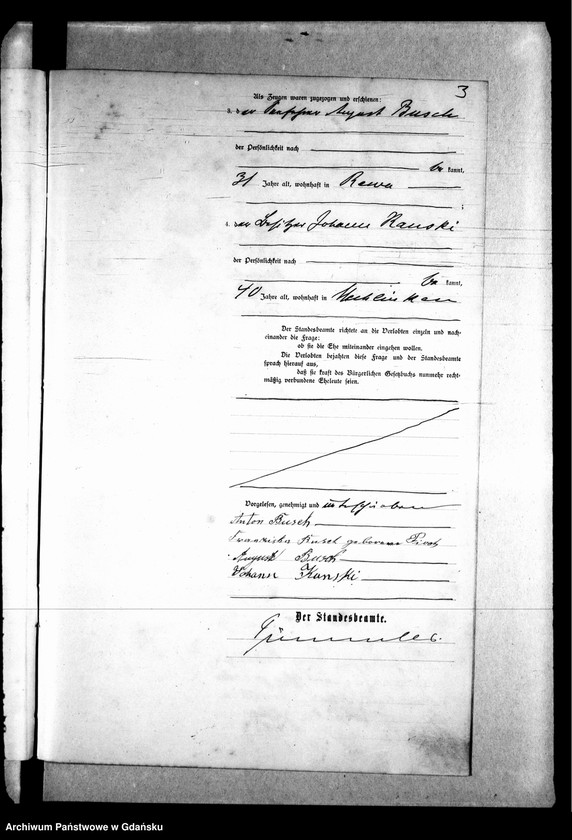 3
Als Zeugen waren zugezogen und erschienen:
3. der August Busch
der Persönlichkeit nach
be kannt,
31 Jahre alt, wohnhaft in Rewa
;
4. der Besitzer Johann Kanski
der Persönlichkeit nach
be kannt,
40 Jahre alt, wohnhaft in Mechlinken
Der Standesbeamte richtete an die Verlobten einzeln und nach-
einander die Frage:
ob sie die Ehe miteinander eingehen wollen.
Die Verlobten bejahten diese Frage und der Standesbeamte
sprach hierauf aus,
daß sie kraft des Bürgerlichen Gesetzbuchs nunmehr recht-
mäßig verbundene Eheleute seien.
Vorgelesen, genehmigt und unterschrieben
Anton Busch
Franziska Busch geborene
August Busch
Johann Kanski
Der Standesbeamte.
Archiwum Państwowe w Gdańsku